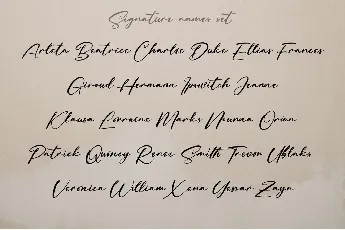 Signature names set
Arleta Beatrice Charlie Duke Ellias Frances
Giroud Hermann Ipswitch Jeanne
Klausa Lorraine Marks Nounaa Orion
Patrick Quincy Renee Smith Trevor
Veronica William Xena Yessar Zayn